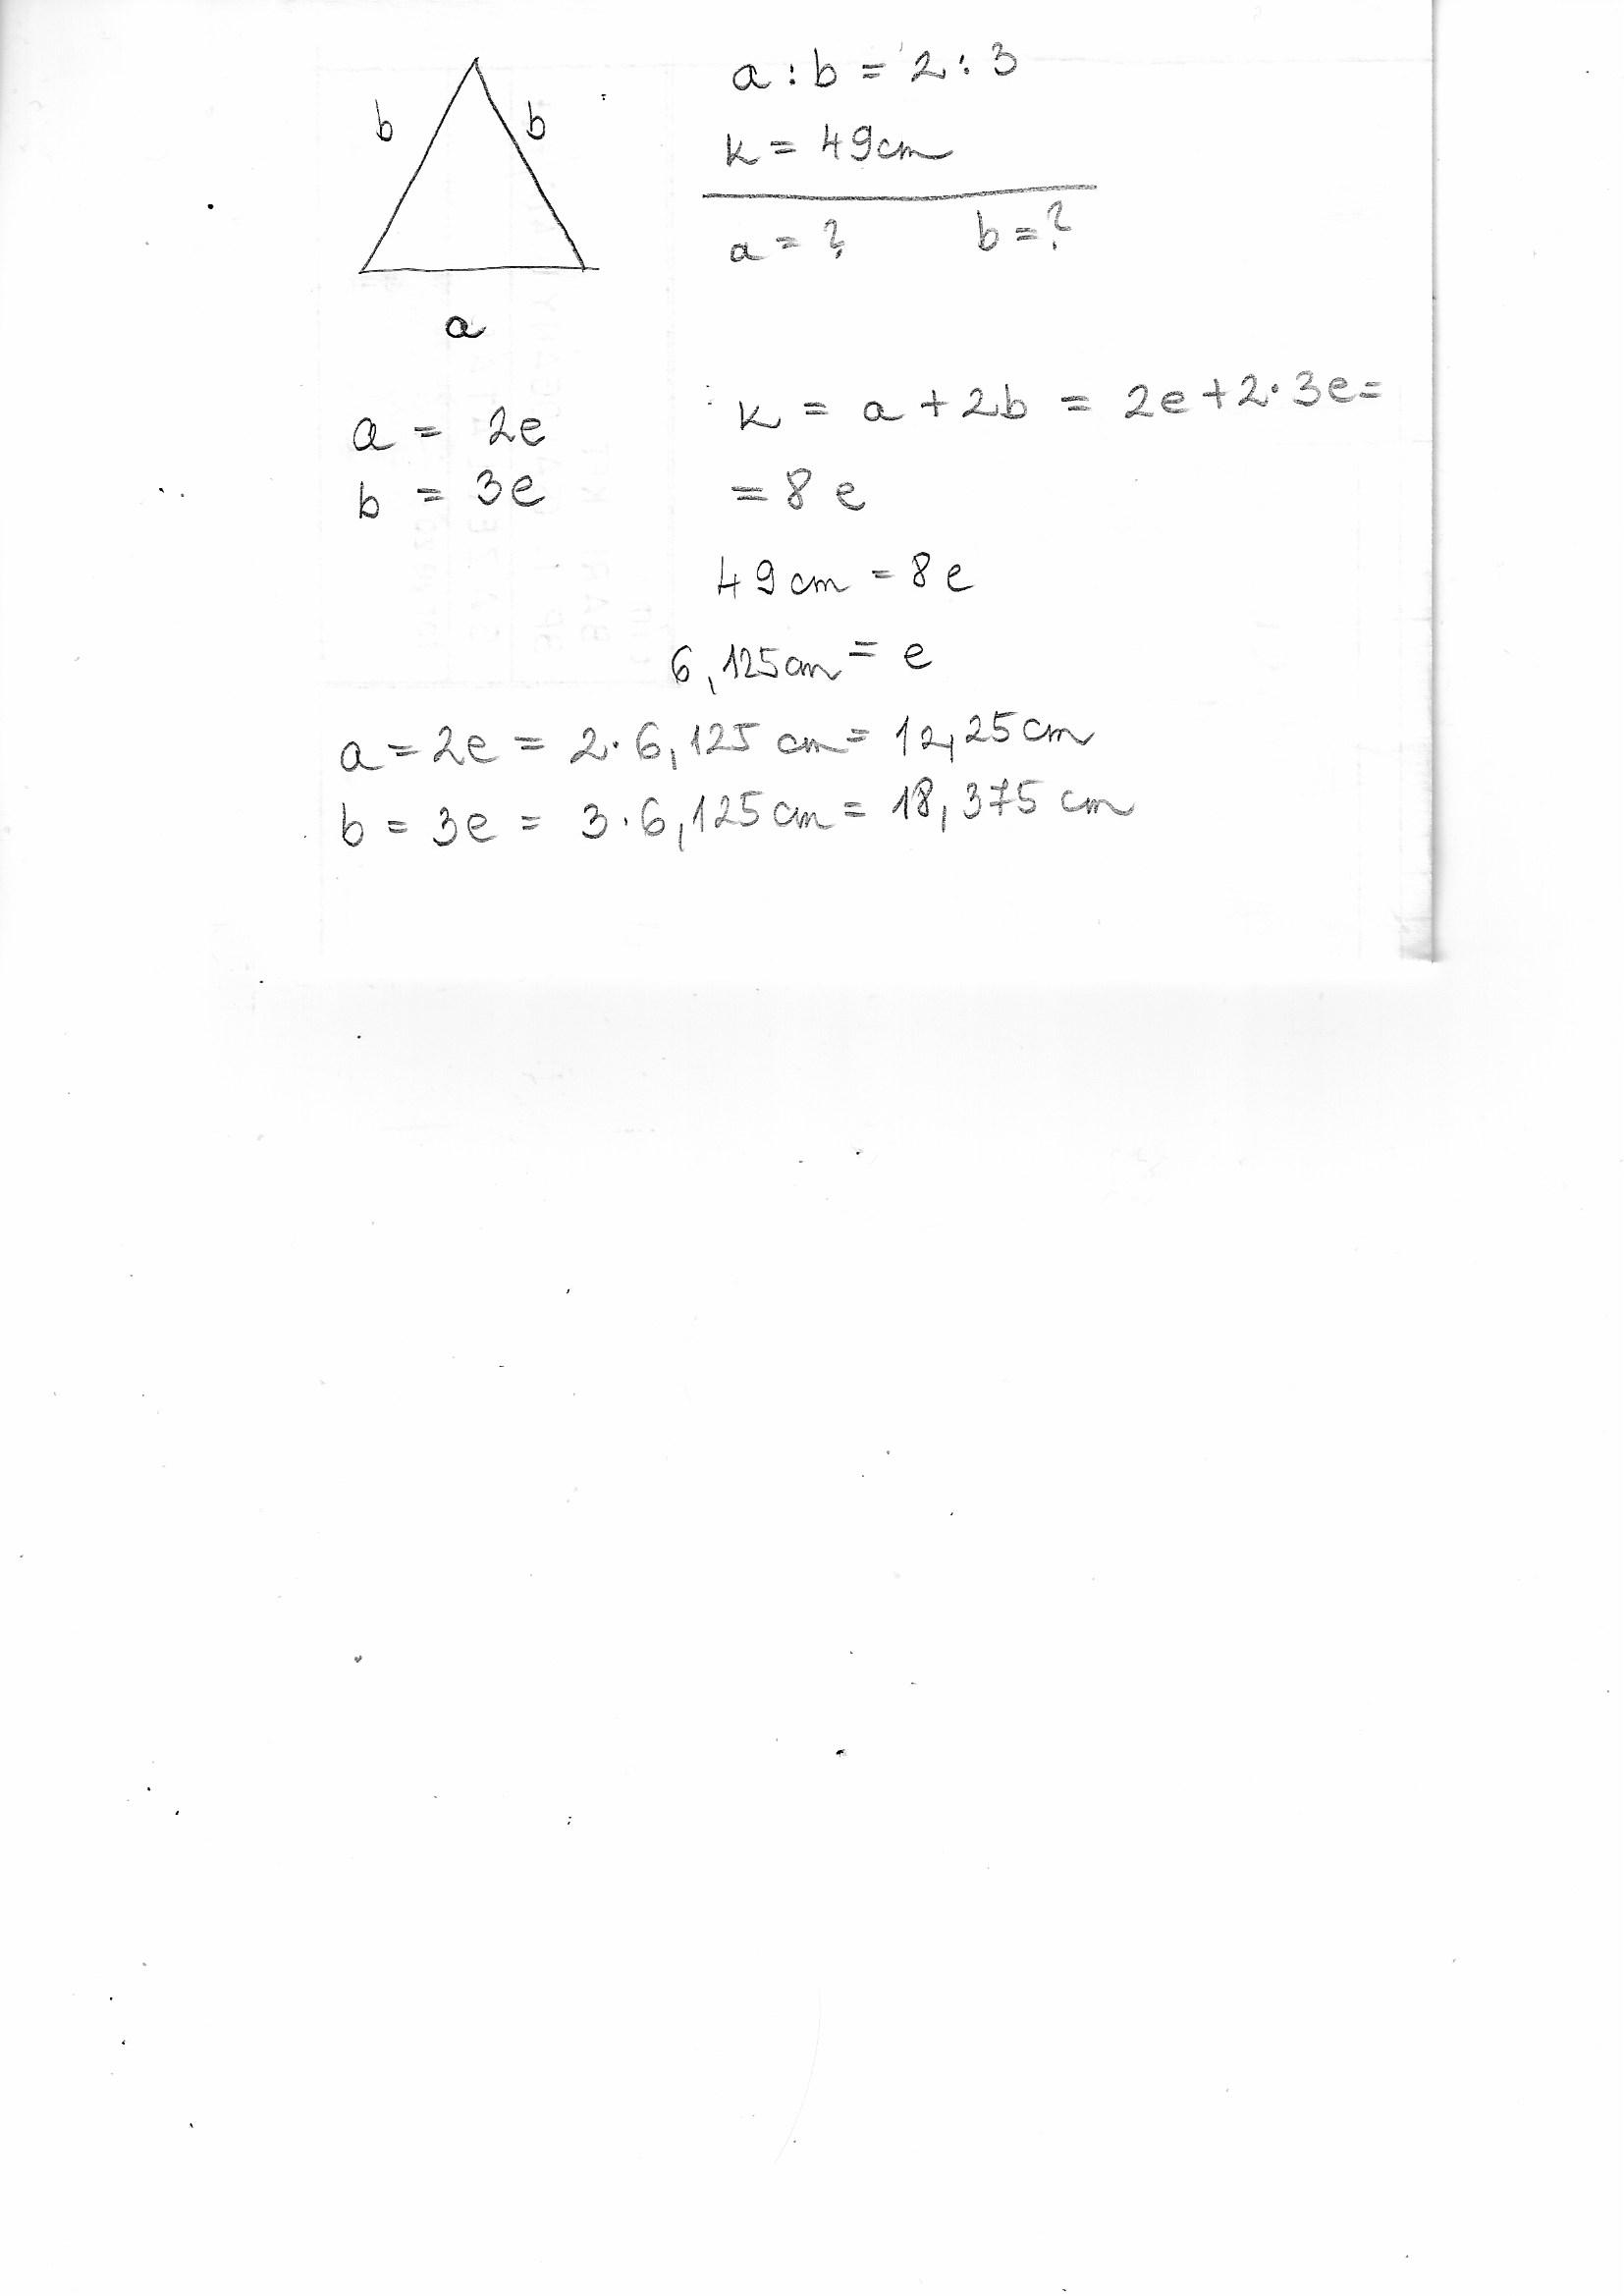 b b
a
a : b = 2 : 3
k = 49cm
a = ? b = ?
a = 2e
b = 3e
k = a + 2b = 2e + 2·3e =
= 8e
49cm = 8e
6,125cm = e
a = 2e = 2·6,125 cm = 12,25cm
b = 3e = 3·6,125cm = 18,375 cm